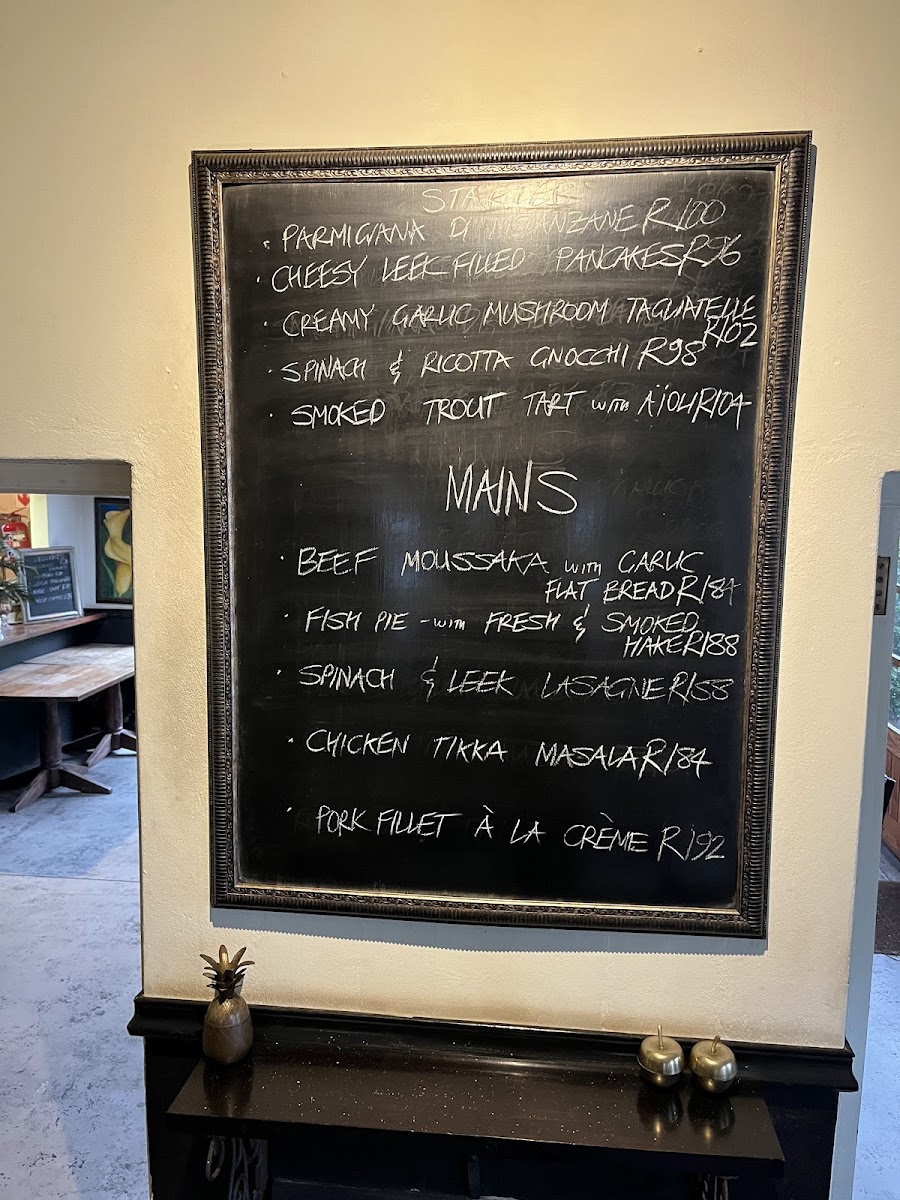 STARTERS
· PARMIGIANA DI MELANZANE R100
· CHEESY LEEK FILLED PANCAKES R96
· CREAMY GARLIC MUSHROOM TAGLIATELLE
R102
· SPINACH & RICOTTA GNOCCHI R98
· SMOKED TROUT TART with AÏOLI R104
MAINS
· BEEF MOUSSAKA with GARLIC
FLAT BREAD R184
· FISH PIE - with FRESH & SMOKED
HAKE R188
· SPINACH & LEEK LASAGNE R158
· CHICKEN TIKKA MASALA R184
· PORK FILLET À LA CRÈME R192